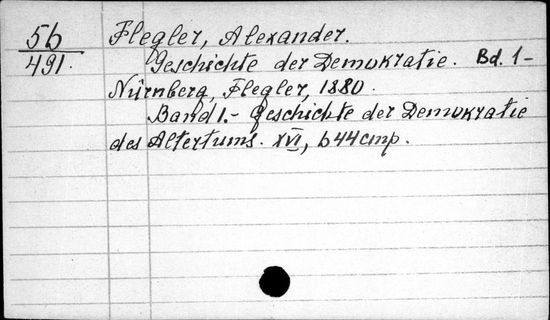 56
491.
Flegler, Alexander.
Geschichte der Demokratie. Bd. 1-
Nürnberg, Flegler, 1880.
Band 1.- Geschichte der Demokratie
des Altertums. XVI, 644 cmp.